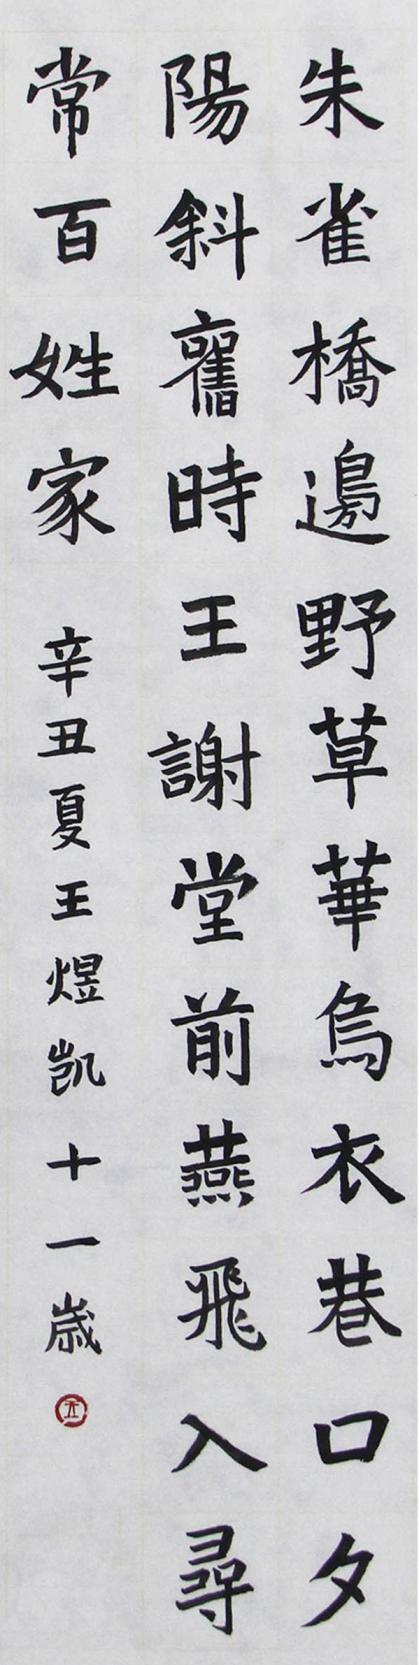 朱雀橋邊野草華烏衣巷口夕
陽斜舊時王謝堂前燕飛入尋
常百姓家 辛丑夏王煜凯十一歲